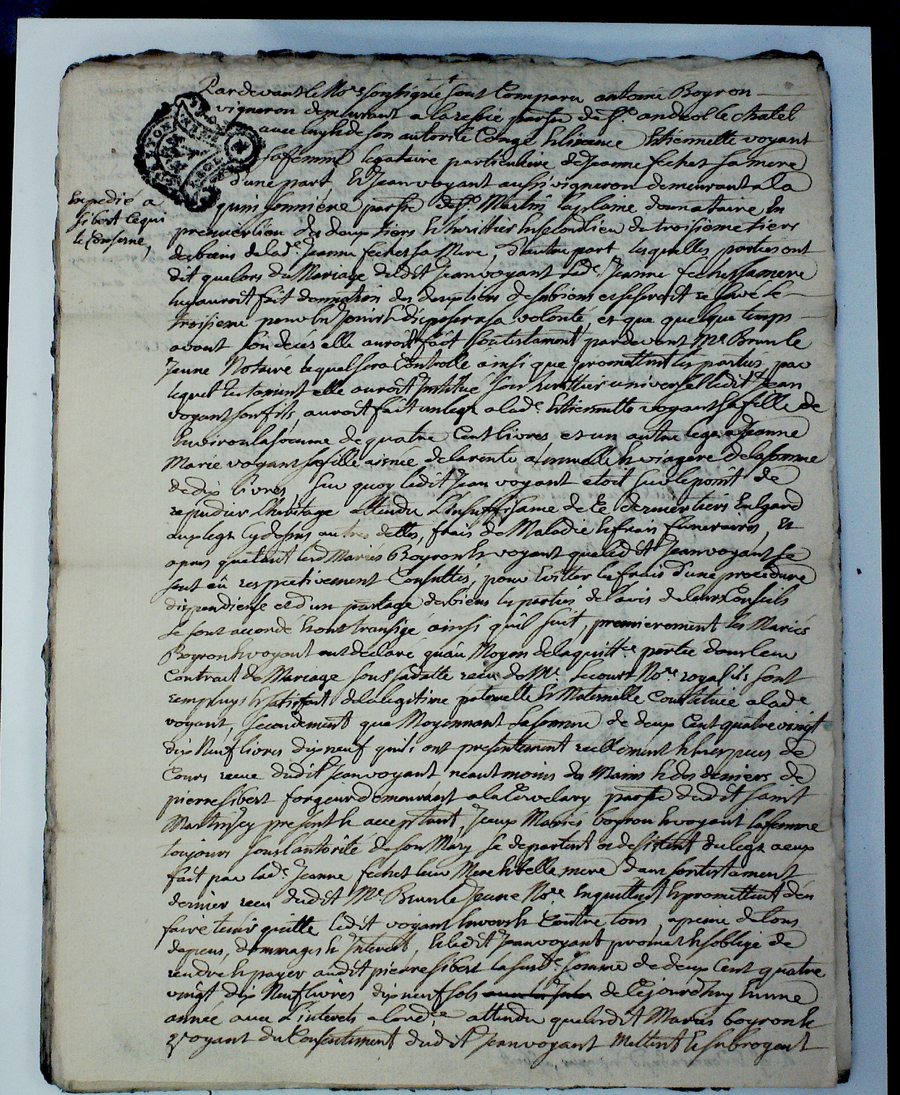 Pardevant le Nore soussigné sont Comparu antoine Boyron
vigneron demeurant a la parse de St andeol le chatel
avec luy & de son autorité Congé & licence Estiennette voyant
sa femme legataire particuliere de Jeanne fechet sa mere
d'une part Et Jean voyant aussi vigneron demeurant a la
parse de St Martin la plaine donnataire En
Expedié a
Sibert le qui
le Conserne
premier lieu des deux tiers & herittier En second lieu du troisieme tiers
des biens de lade Jeanne fechet sa Mere, d'autre part lesquelles parties ont
dit que lors du Mariage dudit Jean voyant lade Jeanne fechet sa mere
luy auroit fait donnation des deux tiers de ses biens et se seroit reservé le
troisieme pour En Jouir & disposer a sa volonté et que quelque temps
avant son deces elle auroit fait son testament pardevant Me Brun le
Jeune Notaire lequel sera Controllé ainsi que promettent les parties par
lequel testament elle auroit Institué son herittier universel ledit Jean
voyant son fils, auroit fait un legt a lade Estiennette voyant sa fille de
Environ la somme de quatre Cent livres et un autre legt a Jeanne
Marie voyant sa fille ainée de la rente annuelle & viagere de la somme
de dix livres, sur quoy ledit Jean voyant etoit sur le point de
repudier l'heritage attendu l'insuffisance de ce dernier tiers En Egard
aux legt cy dessus autres dettes, frais de Maladie & frais funeraires, Et
apres quoy tant les Mariés Boyron & voyant que ledit Jean voyant, se
sont eû respectivement Consultés, pour Eviter les frais d'une procedure
dispendieuse et d'un partage des biens les parties de l'avis de leurs Conseils
se sont accordé & ont transigé ainsi qu'il suit, premierement les Mariés
Boyron & voyant ont declaré qu'au Moyen de la quittce portée dans leur
Contract de Mariage sous sa datte receu de Me Lecourt Nore royal ils sont
remplis & satisfait de la legitime paternelle & Maternelle Constituée a lade
voyant, secondement que Moyennant la somme de deux Cent quatre vingt
dix Neuf livres dix neuf qu'ils ont presentement reellement & en especes de
Cours receu dudit Jean voyant neantmoins des Mains & des deniers de
pierre Sibert forgeur demeurant a la parse dudit saint
Martin icy present & acceptant, Iceux Mariés boyron & voyant la femme
toujours sous l'autorité de son Mary se departent & desistent du legt a eux
fait par lade Jeanne fechet leur Mere & belle mere dans son testament
dernier receu dudit Me Brun le Jeune Nore En quittent & promettent d'en
faire tenir quitte ledit voyant Envers & Contre tous, a peine de tous
depens, dommages & Interets, & ledit Jean voyant promet & s'oblige de
rendre & payer audit pierre Sibert la susde somme de deux Cent quatre
vingt dix Neuf livres dix neuf sols de ce jourd'huy En une
année avec l'interets attendu que lesdit Mariés boyron &
voyant du Consentement dudit Jean voyant Mettent & subrogent